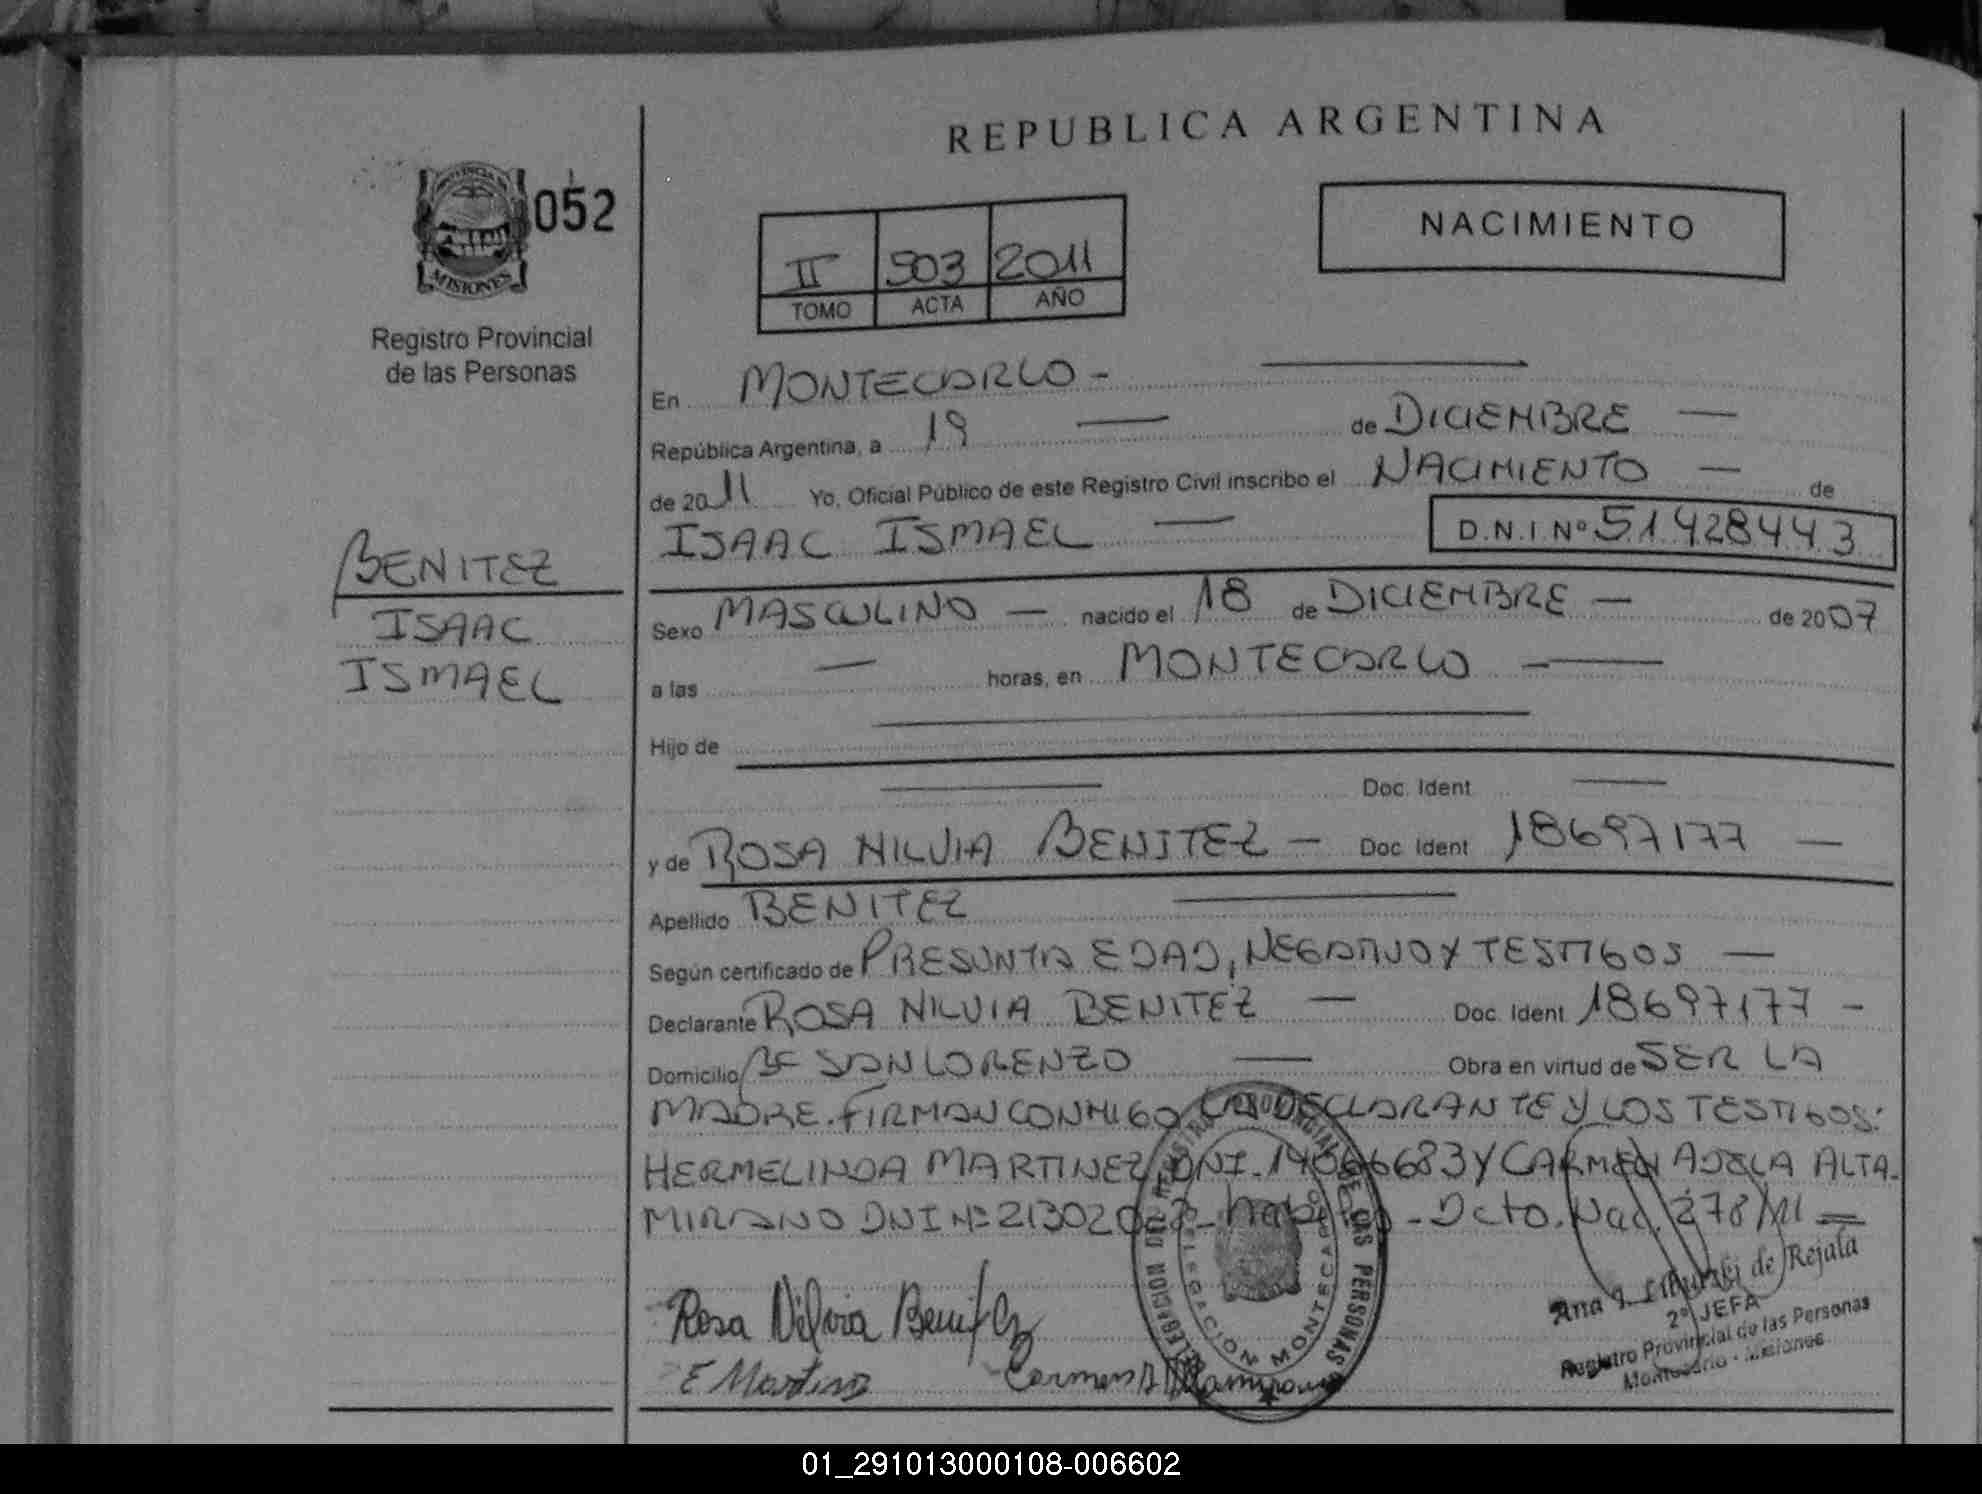 REPUBLICA ARGENTINA
PROVINCIA DE
MISIONES
052
Registro Provincial
de las Personas
NACIMIENTO
II 503 2011
TOMO ACTA AÑO
En MONTECARLO -
República Argentina, a 19 — de DICIEMBRE —
de 2011 Yo, Oficial Público de este Registro Civil inscribo el NACIMIENTO — de
ISAAC ISMAEL — D.N.I Nº 51.428443
BENITEZ
ISAAC
ISMAEL
Sexo MASCULINO — nacido el 18 de DICIEMBRE — de 2007
a las — horas, en MONTECARLO —
Hijo de
Doc. Ident —
y de ROSA NILVIA BENITEZ — Doc. Ident 18697177 —
Apellido BENITEZ —
Según certificado de PRESUNTA EDAD, NEGATIVO Y TESTIGOS —
Declarante ROSA NILVIA BENITEZ — Doc. Ident 18697177 -
Domicilio Bº SAN LORENZO — Obra en virtud de SER LA
MADRE. FIRMAN CONMIGO LA DECLARANTE Y LOS TESTIGOS:
HERMELINDA MARTINEZ DNI. Y CARMEN ADELA ALTA-
MIRANO DNI Nº - Dcto. Nac. 278/11 =
Rosa Nilvia Benitez
E Martinez Carmen A Altamirano
DELEGACION MONTECARLO
Ana de Rejala
2º JEFA
Registro Provincial de las Personas
Montecarlo - Misiones
01_291013000108-006602